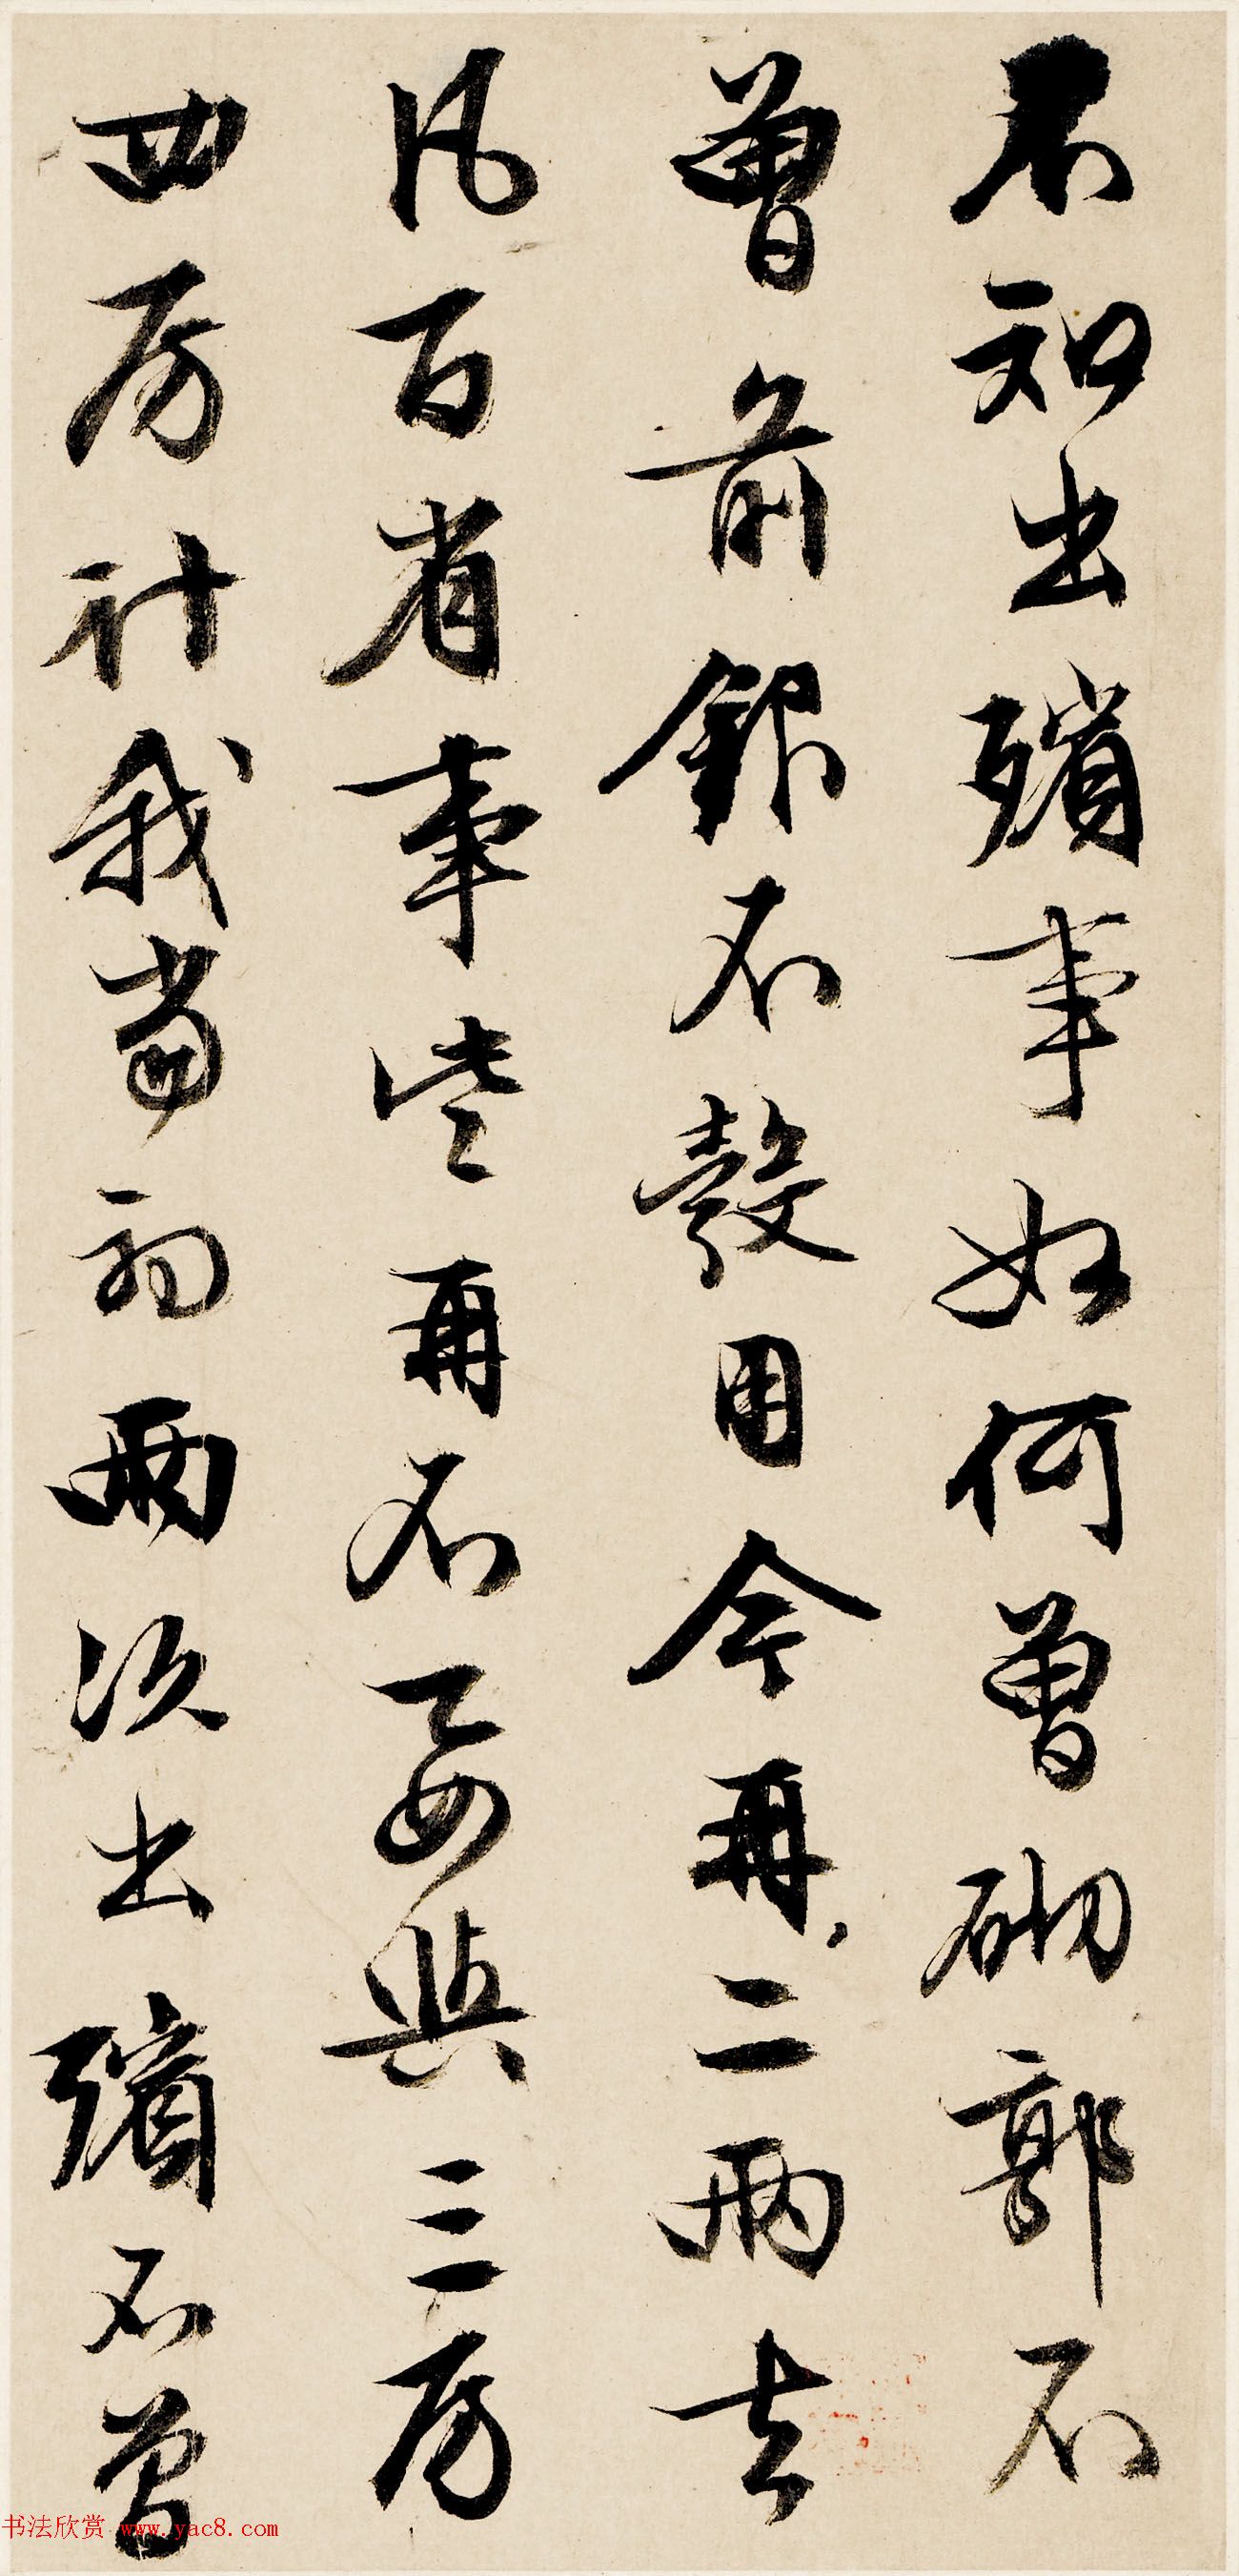 不知出殯事如何曾砌郭不
曾前銀不彀用今再二兩去
凡百省事些再不要與三房
四房計我當初兩次出殯不曾
书法欣赏 www.yac8.com